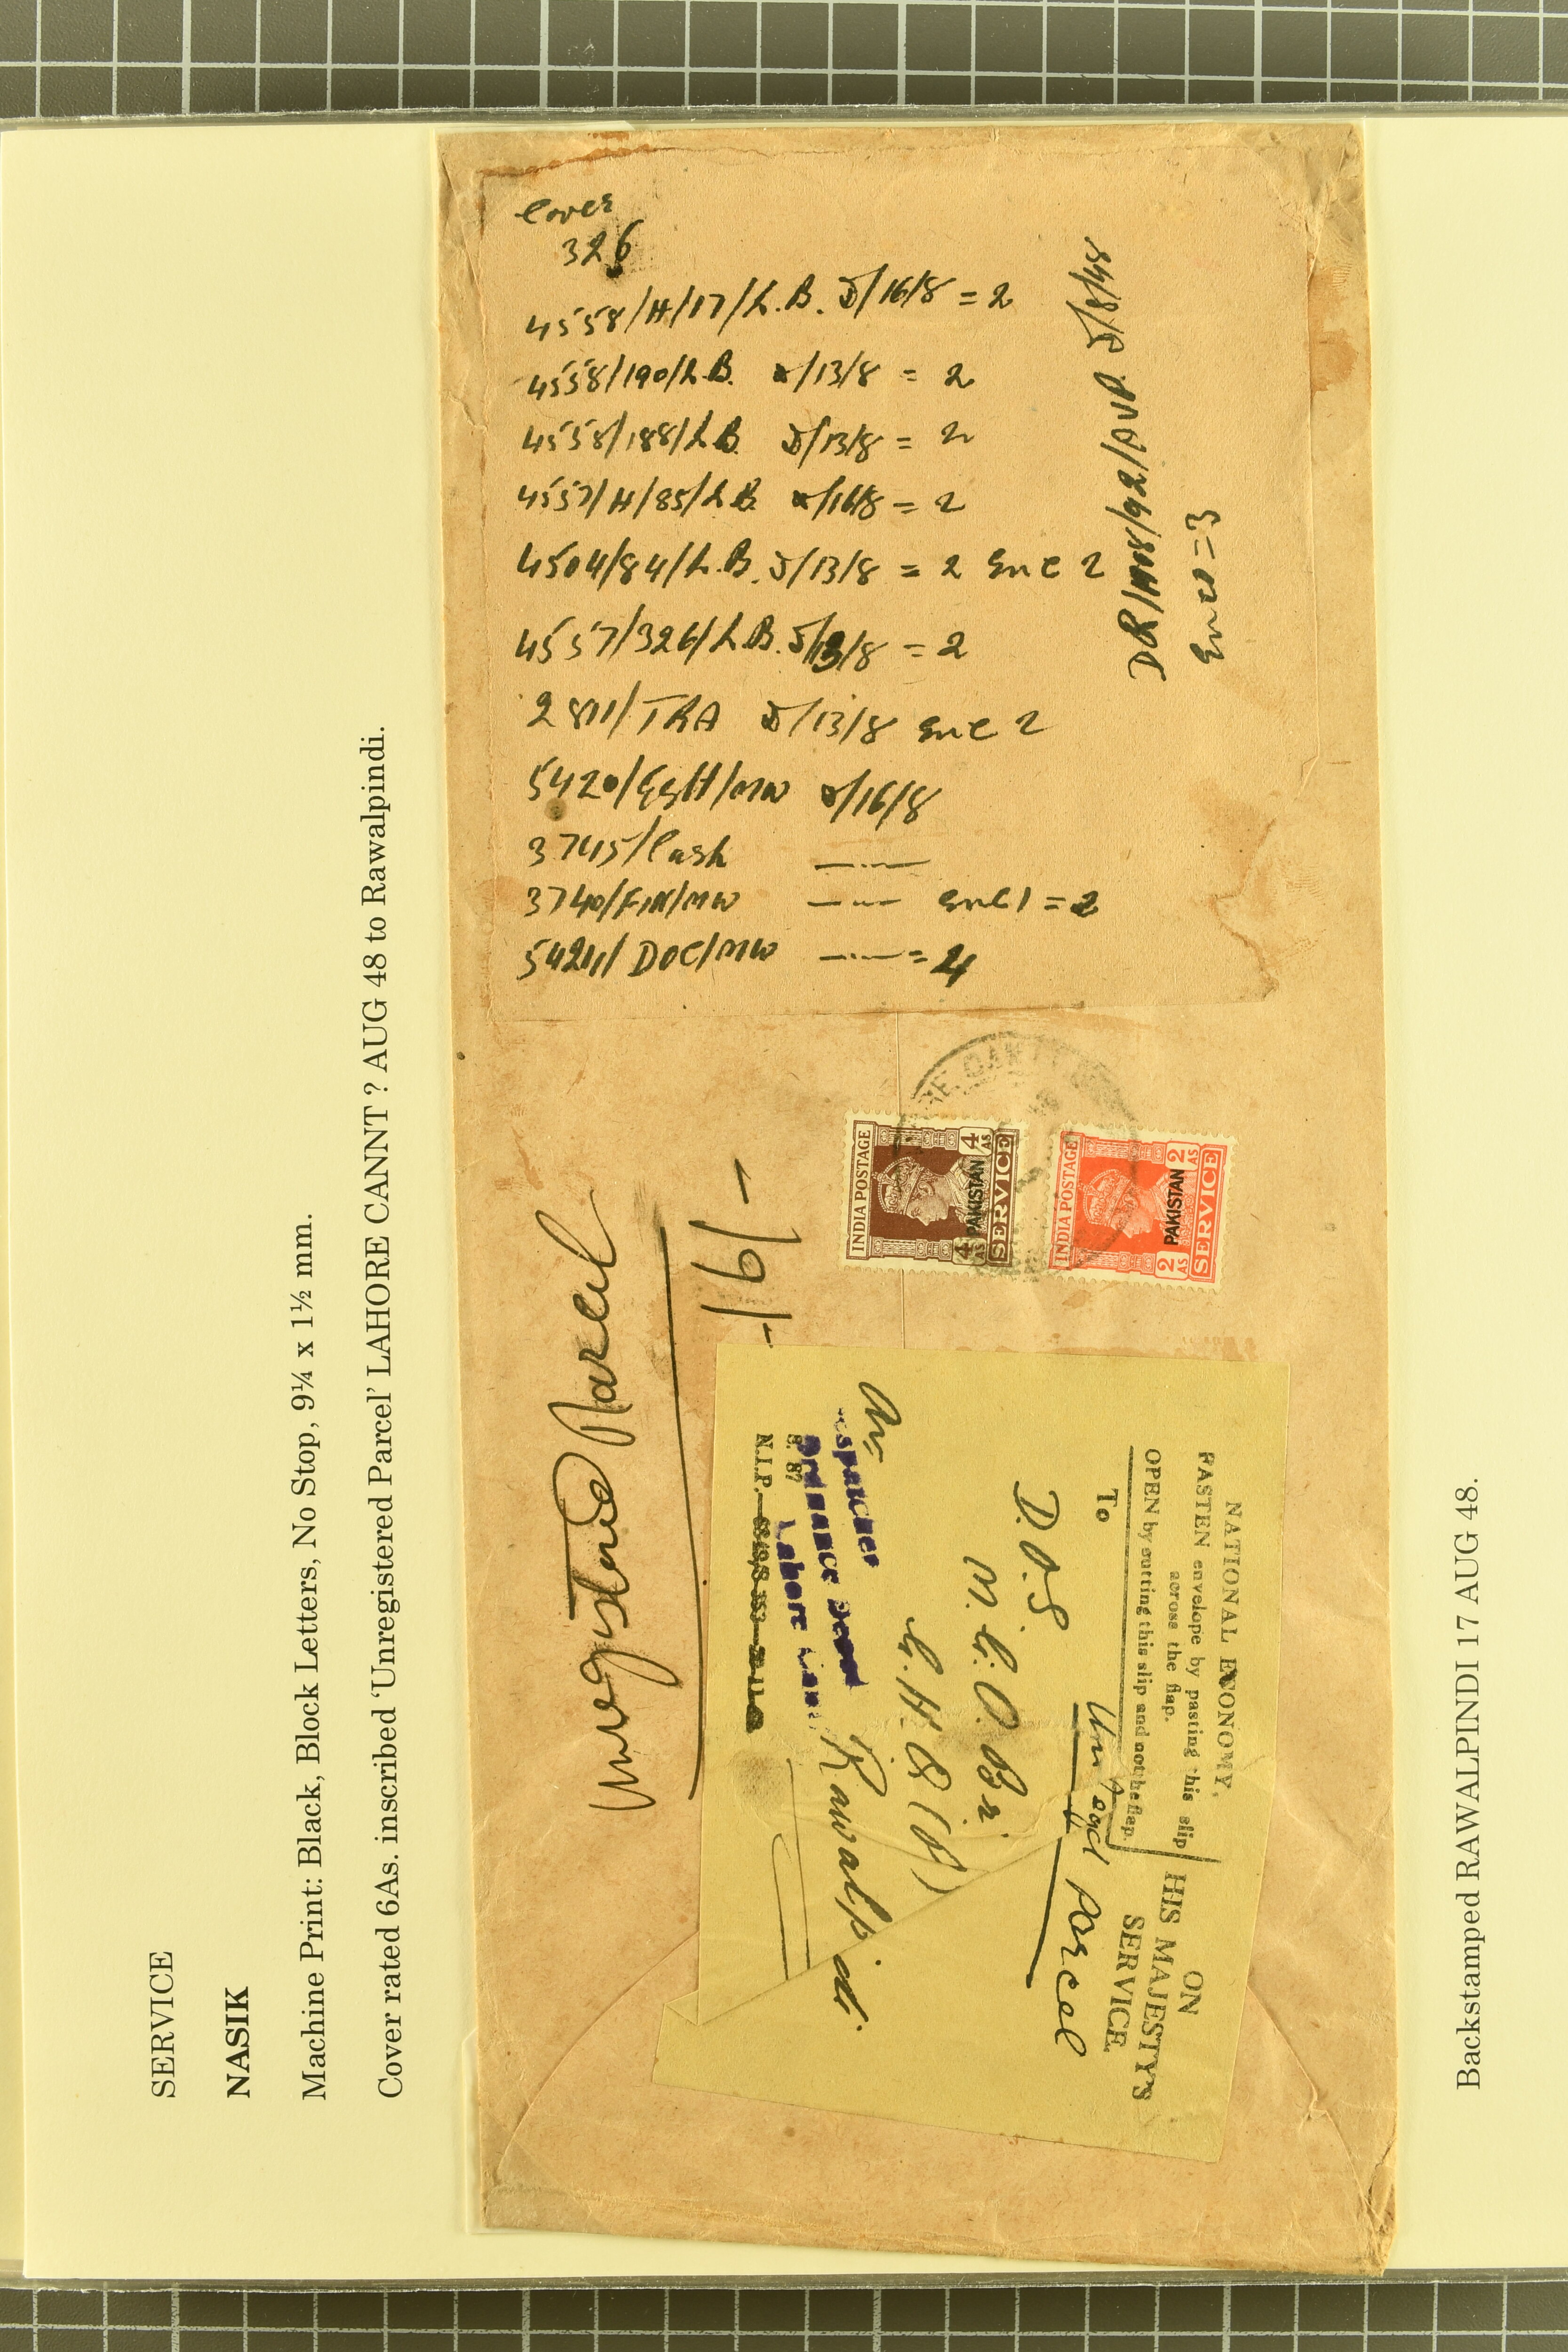 SERVICE
NASIK
Machine Print: Black, Block Letters, No Stop, 9¼ x 1½ mm.
Cover rated 6As. inscribed ‘Unregistered Parcel’ LAHORE CANNT ? AUG 48 to Rawalpindi.
Cover
326
4558/H/17/L.B. D/16/8 = 2
4558/190/L.B. /13/8 = 2
4558/188/L.B. D/13/8 = 2
4557/H/85/L.B. /16/8 = 2
4504/84/L.B. D/13/8 = 2 Enc 2
4557/326/L.B. D/13/8 = 2
2811/TRA D/13/8 Enc 2
5420/EstH/MW /16/8
3745/Cash —··—
3740/FIN/MW —··— Encl = 2
5421/DOC/MW —··— = 4
Encl = 3
Unregistered Parcel
-/6/-
INDIA POSTAGE
4 AS PAKISTAN 4 AS
SERVICE
INDIA POSTAGE
2 AS PAKISTAN 2 AS
SERVICE
NATIONAL ECONOMY.
FASTEN envelope by pasting this slip
across the flap.
OPEN by cutting this slip and not the flap.
ON
HIS MAJESTY'S
SERVICE
Un Regd Parcel
To
D.O.S
M.G.O. Br.
G.H.Q (P)
Rawalpindi.
Despatcher
Ordnance Depot
Lahore Cantt
S. 87
N.I.P.
Backstamped RAWALPINDI 17 AUG 48.